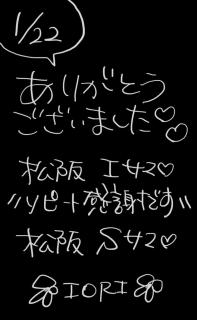 1/22
ありがとう
ございました♡♡
松阪 Iサマ♡
〃リピート感謝だす〃
松阪 Sサマ♡
IORI